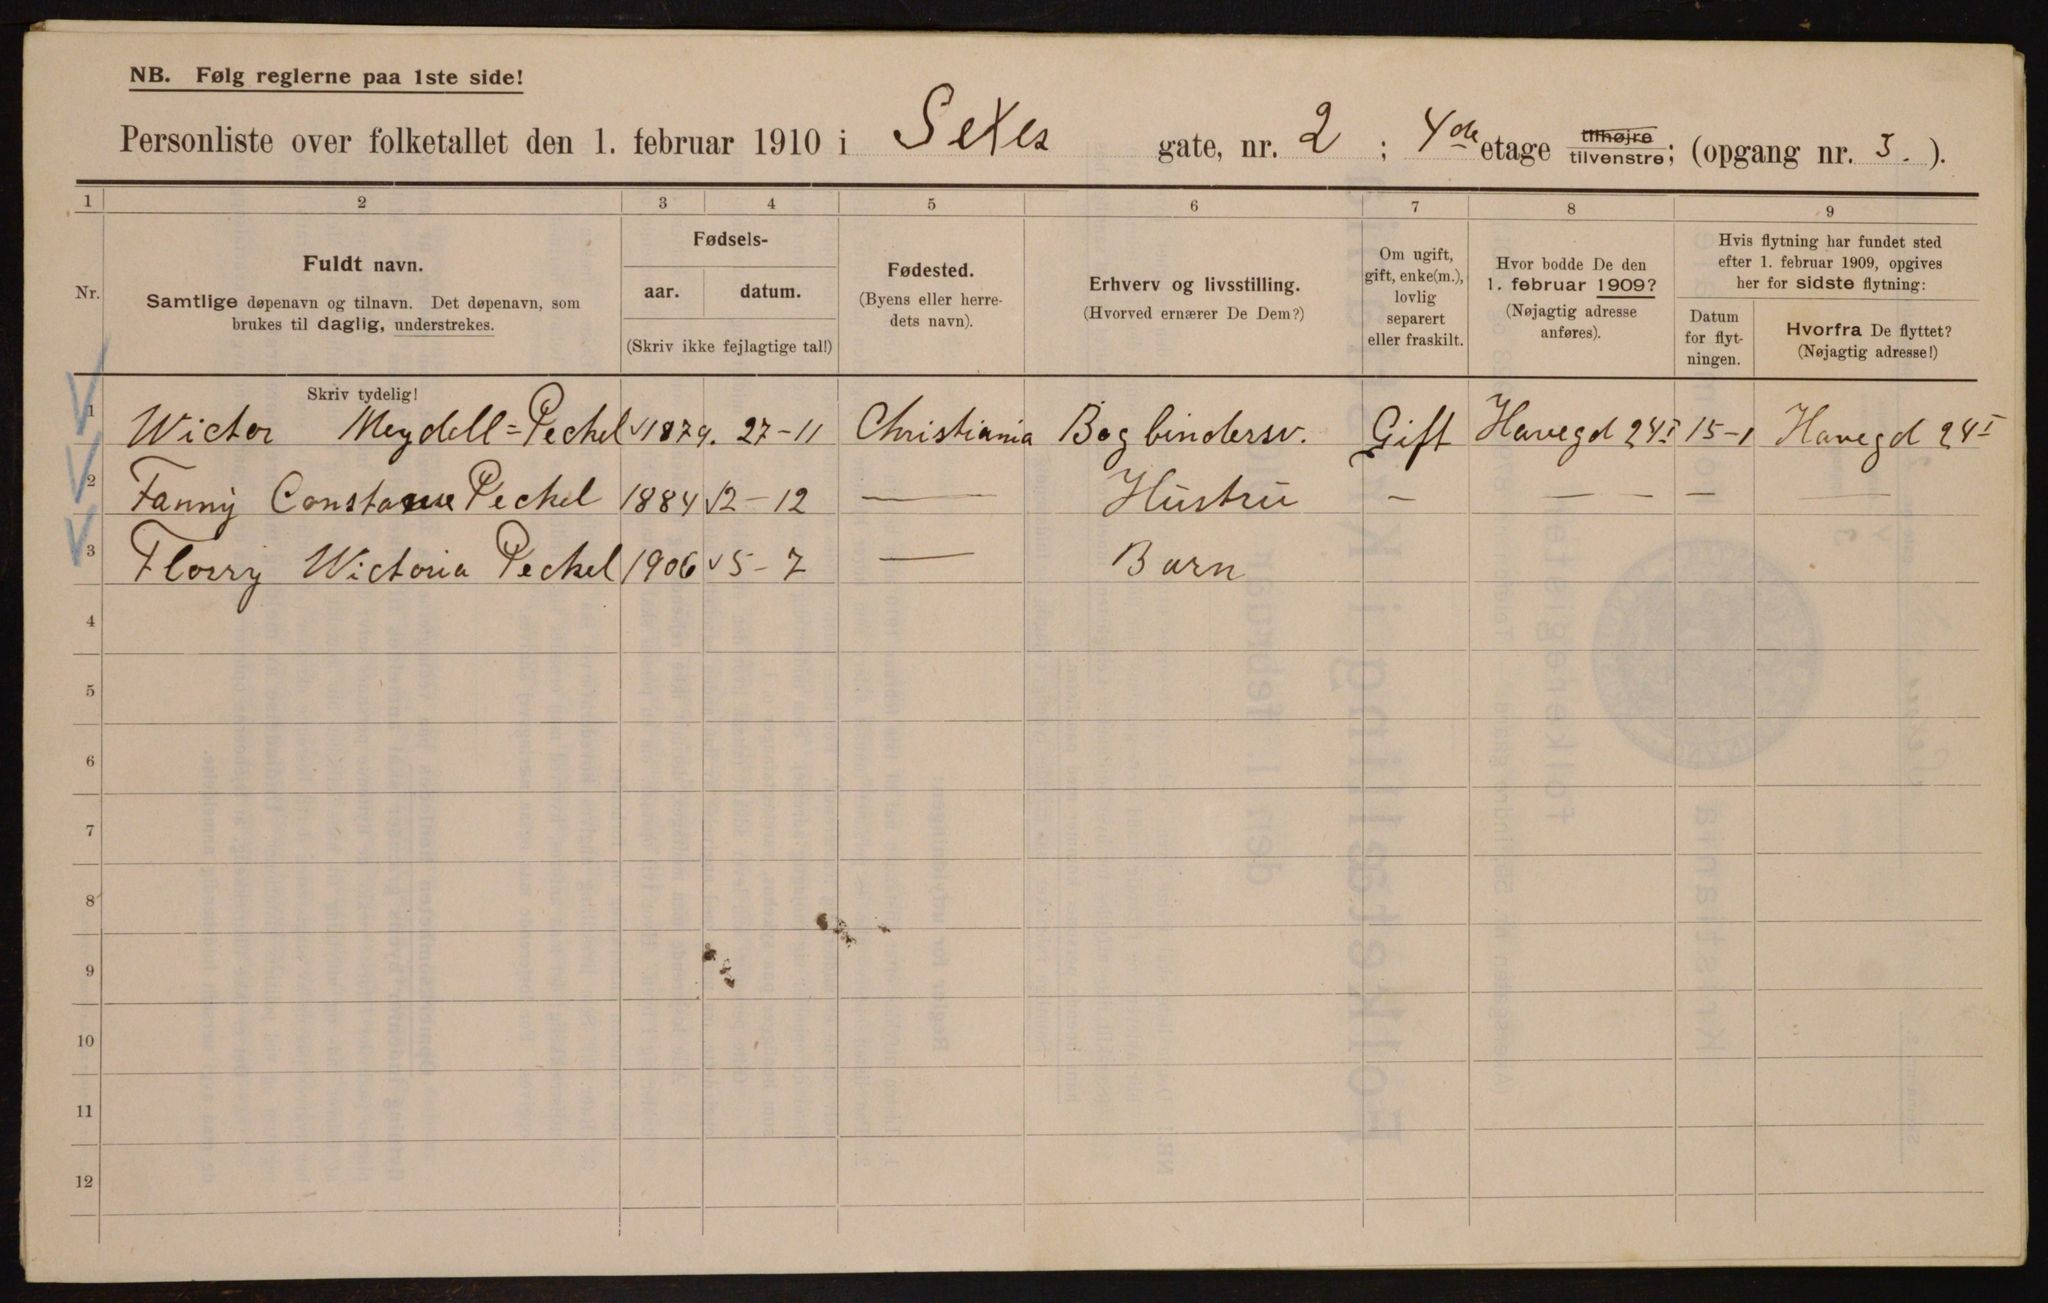 NB. Følg reglerne paa 1ste side!
Personliste over folketallet den 1. februar 1910 i Sexes gate, nr. 2 ; 4de etage tilhøjre tilvenstre; (opgang nr. 3. ).
1 2 3 4 5 6 7 8 9
Nr.
Fuldt navn.
Samtlige døpenavn og tilnavn. Det døpenavn, som
brukes til daglig, understrekes.
Fødsels-
aar. datum.
(Skriv ikke fejlagtige tal!)
Fødested.
(Byens eller herre-
dets navn).
Erhverv og livsstilling.
(Hvorved ernærer De Dem?)
Om ugift,
gift, enke(m.),
lovlig
separert
eller fraskilt.
Hvor bodde De den
1. februar 1909?
(Nøjagtig adresse
anføres).
Hvis flytning har fundet sted
efter 1. februar 1909, opgives
her for sidste flytning:
Datum
for flyt-
ningen.
Hvorfra De flyttet?
(Nøjagtig adresse!)
Skriv tydelig!
1 Wictor Meydell=Peckel 1879. 27-11 Christiania Bogbindersv. Gift Havegd 24 I 15-1 Havegd 24 I
2 Fanny Peckel 1884 12-12 — Hustru — — — — —
3 Florry Wictoria Peckel 1906 5-7 — Barn
4
5
6
7
8
9
10
11
12